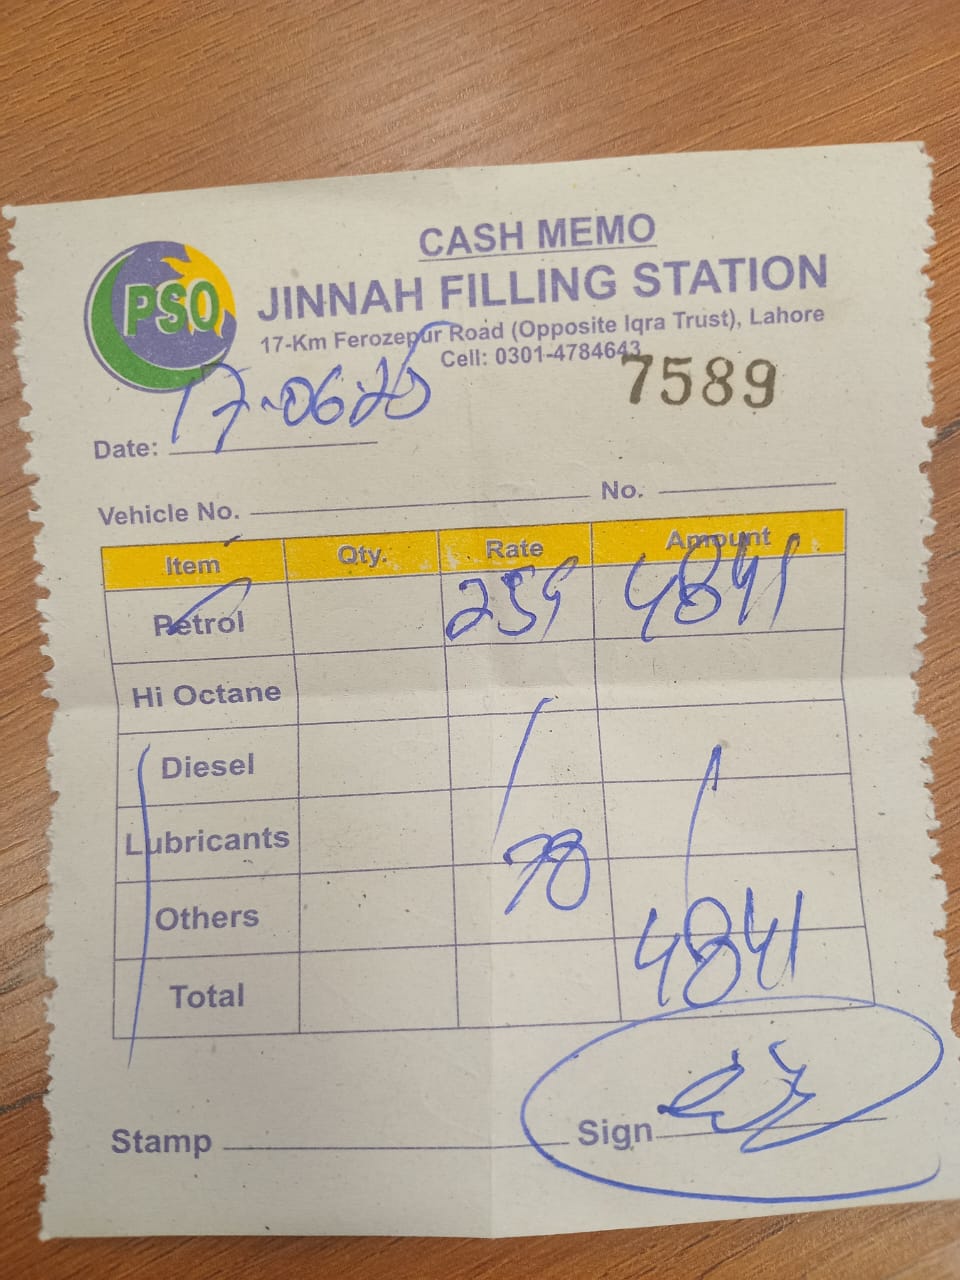 CASH MEMO
PSO
JINNAH FILLING STATION
17-Km Ferozepur Road (Opposite Iqra Trust), Lahore
Cell: 0301-4784643
7589
Date: 17-06-25
Vehicle No. No.
Item Qty. Rate Amount
Petrol 254 4841
Hi Octane
Diesel
Lubricants
78
Others
4841
Total
Stamp Sign